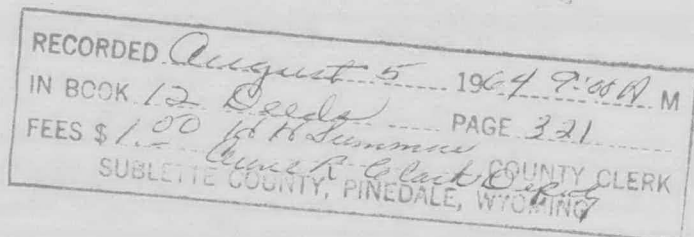 RECORDED August 5 1964 9:00 A M
IN BOOK 12 Deeds PAGE 321
FEES $1.00 H H Summers COUNTY CLERK
R Clark Deputy
SUBLETTE COUNTY, PINEDALE, WYOMING